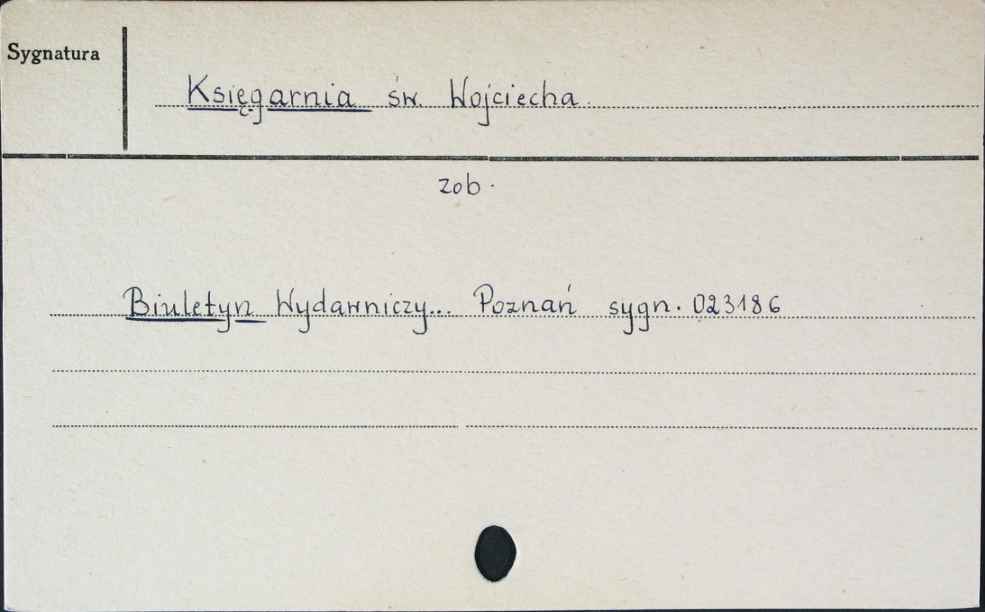 Sygnatura
Księgarnia św. Wojciecha.
zob.
Biuletyn Wydawniczy... Poznań sygn. 023186